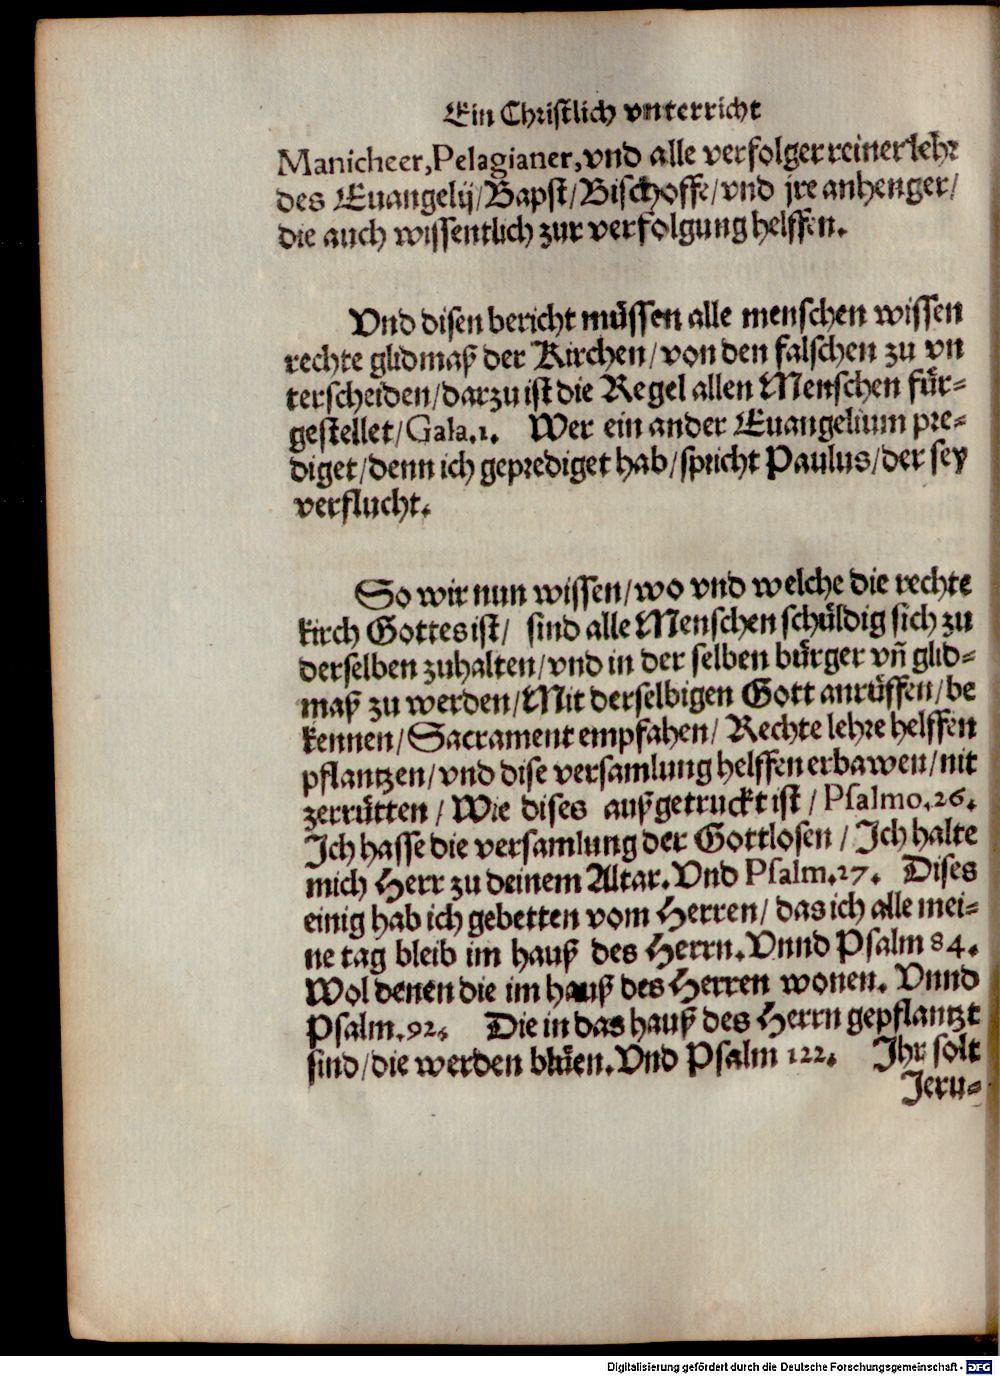 Ein Christlich vnterricht
Manicheer, Pelagianer, vnd alle verfolger reiner lehr
des Euangelij/ Bapst/ Bischoffe/ vnd jre anhenger/
die auch wissentlich zur verfolgung helffen.
Vnd disen bericht müssen alle menschen wissen
rechte glidmaß der Kirchen/ von den falschen zu vn
terscheiden/ darzu ist die Regel allen Menschen für-
gestellet/ Gala.1. Wer ein ander Euangelium pre-
diget/ denn ich geprediget hab/ spricht Paulus/ der sey
verflucht.
So wir nun wissen/ wo vnd welche die rechte
kirch Gottes ist/ sind alle Menschen schüldig sich zu
derselben zuhalten/ vnd in der selben bürger vñ glid-
maß zu werden/ Mit derselbigen Gott anrüffen/ be
kennen/ Sacrament empfahen/ Rechte lehre helffen
pflantzen/ vnd dise versamlung helffen erbawen/ nit
zerrütten/ Wie dises außgetruckt ist/ Psalmo.26.
Ich hasse die versamlung der Gottlosen/ Ich halte
mich Herr zu deinem Altar. Vnd Psalm.27. Dises
einig hab ich gebetten vom Herren/ das ich alle mei-
ne tag bleib im hauß des Herrn. Vnnd Psalm 84.
Wol denen die im hauß des Herren wonen. Vnnd
Psalm.92. Die in das hauß des Herrn gepflantzt
sind/ die werden blüen. Vnd Psalm 122. Ihr solt
Jeru-
Digitalisierung gefördert durch die Deutsche Forschungsgemeinschaft - DFG